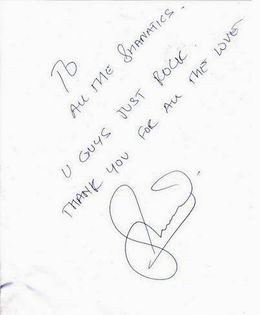 To
All the Shanatics.
U guys just rock.
Thank you for all the love